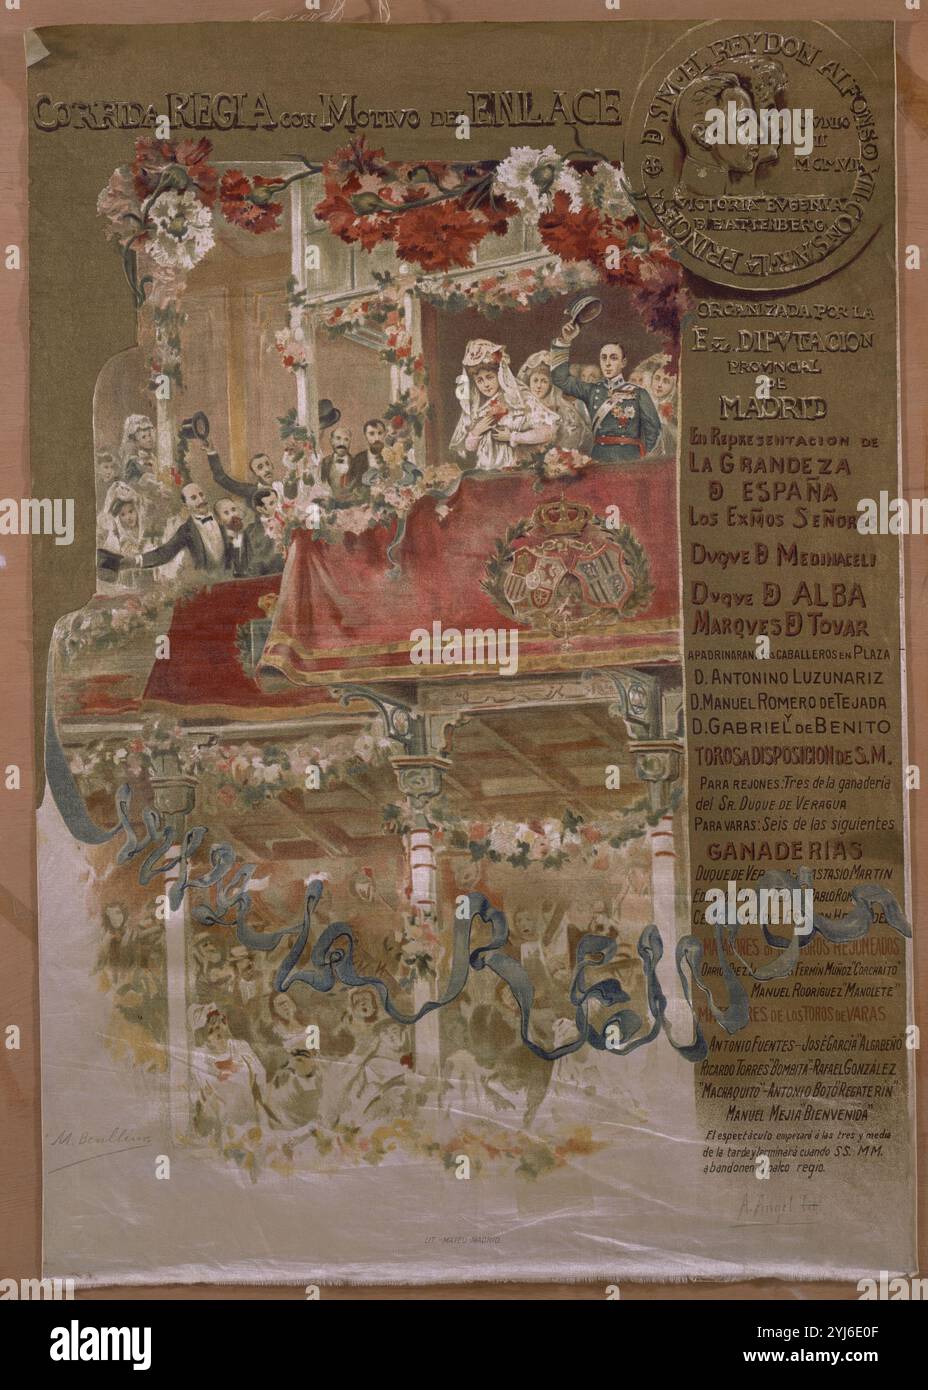 CORRIDA REGIA CON MOTIVO DEL ENLACE
D S.M. EL REY DON ALFONSO XIII CON S.A.R. LA PRINCESA
VICTORIA EUGENIA
D BATTENBERG
ORGANIZADA POR LA
EXMA. DIPUTACION
PROVINCIAL
DE
MADRID
EN REPRESENTACION DE
LA GRANDEZA
D ESPAÑA
LOS EXMOS SEÑORES
DUQUE D MEDINACELI
DUQUE D ALBA
MARQUES D TOVAR
APADRINARAN CABALLEROS EN PLAZA
D. ANTONINO LUZUNARIZ
D. MANUEL ROMERO DE TEJADA
Y
D. GABRIEL DE BENITO
TOROS A DISPOSICION DE S.M.
PARA REJONES: Tres de la ganadería
del SR. DUQUE DE VERAGUA
PARA VARAS: Seis de las siguientes
GANADERIAS
DUQUE DE MARTIN
PABLO
MATADORES TOROS REJONEADOS
FERMÍN MUÑOZ "CORCHAITO"
MANUEL RODRÍGUEZ "MANOLETE"
MATADORES DE LOS TOROS DE VARAS
ANTONIO FUENTES-JOSÉ GARCIA "ALGABEÑO"
RICARDO TORRES "BOMBITA"-RAFAEL GONZÁLEZ
"MACHAQUITO"-ANTONIO BOTO "REGATERIN"
MANUEL MEJIA "BIENVENIDA"
El espectáculo empezará á las tres y media
de la tarde y terminará cuando SS. MM.
abandonen palco regio.
Viva La Reina
M. Benlliure
A. Angel lit
LIT.-MATEU-MADRID.
alamy
Image ID: 2YJ6E0F
www.alamy.com